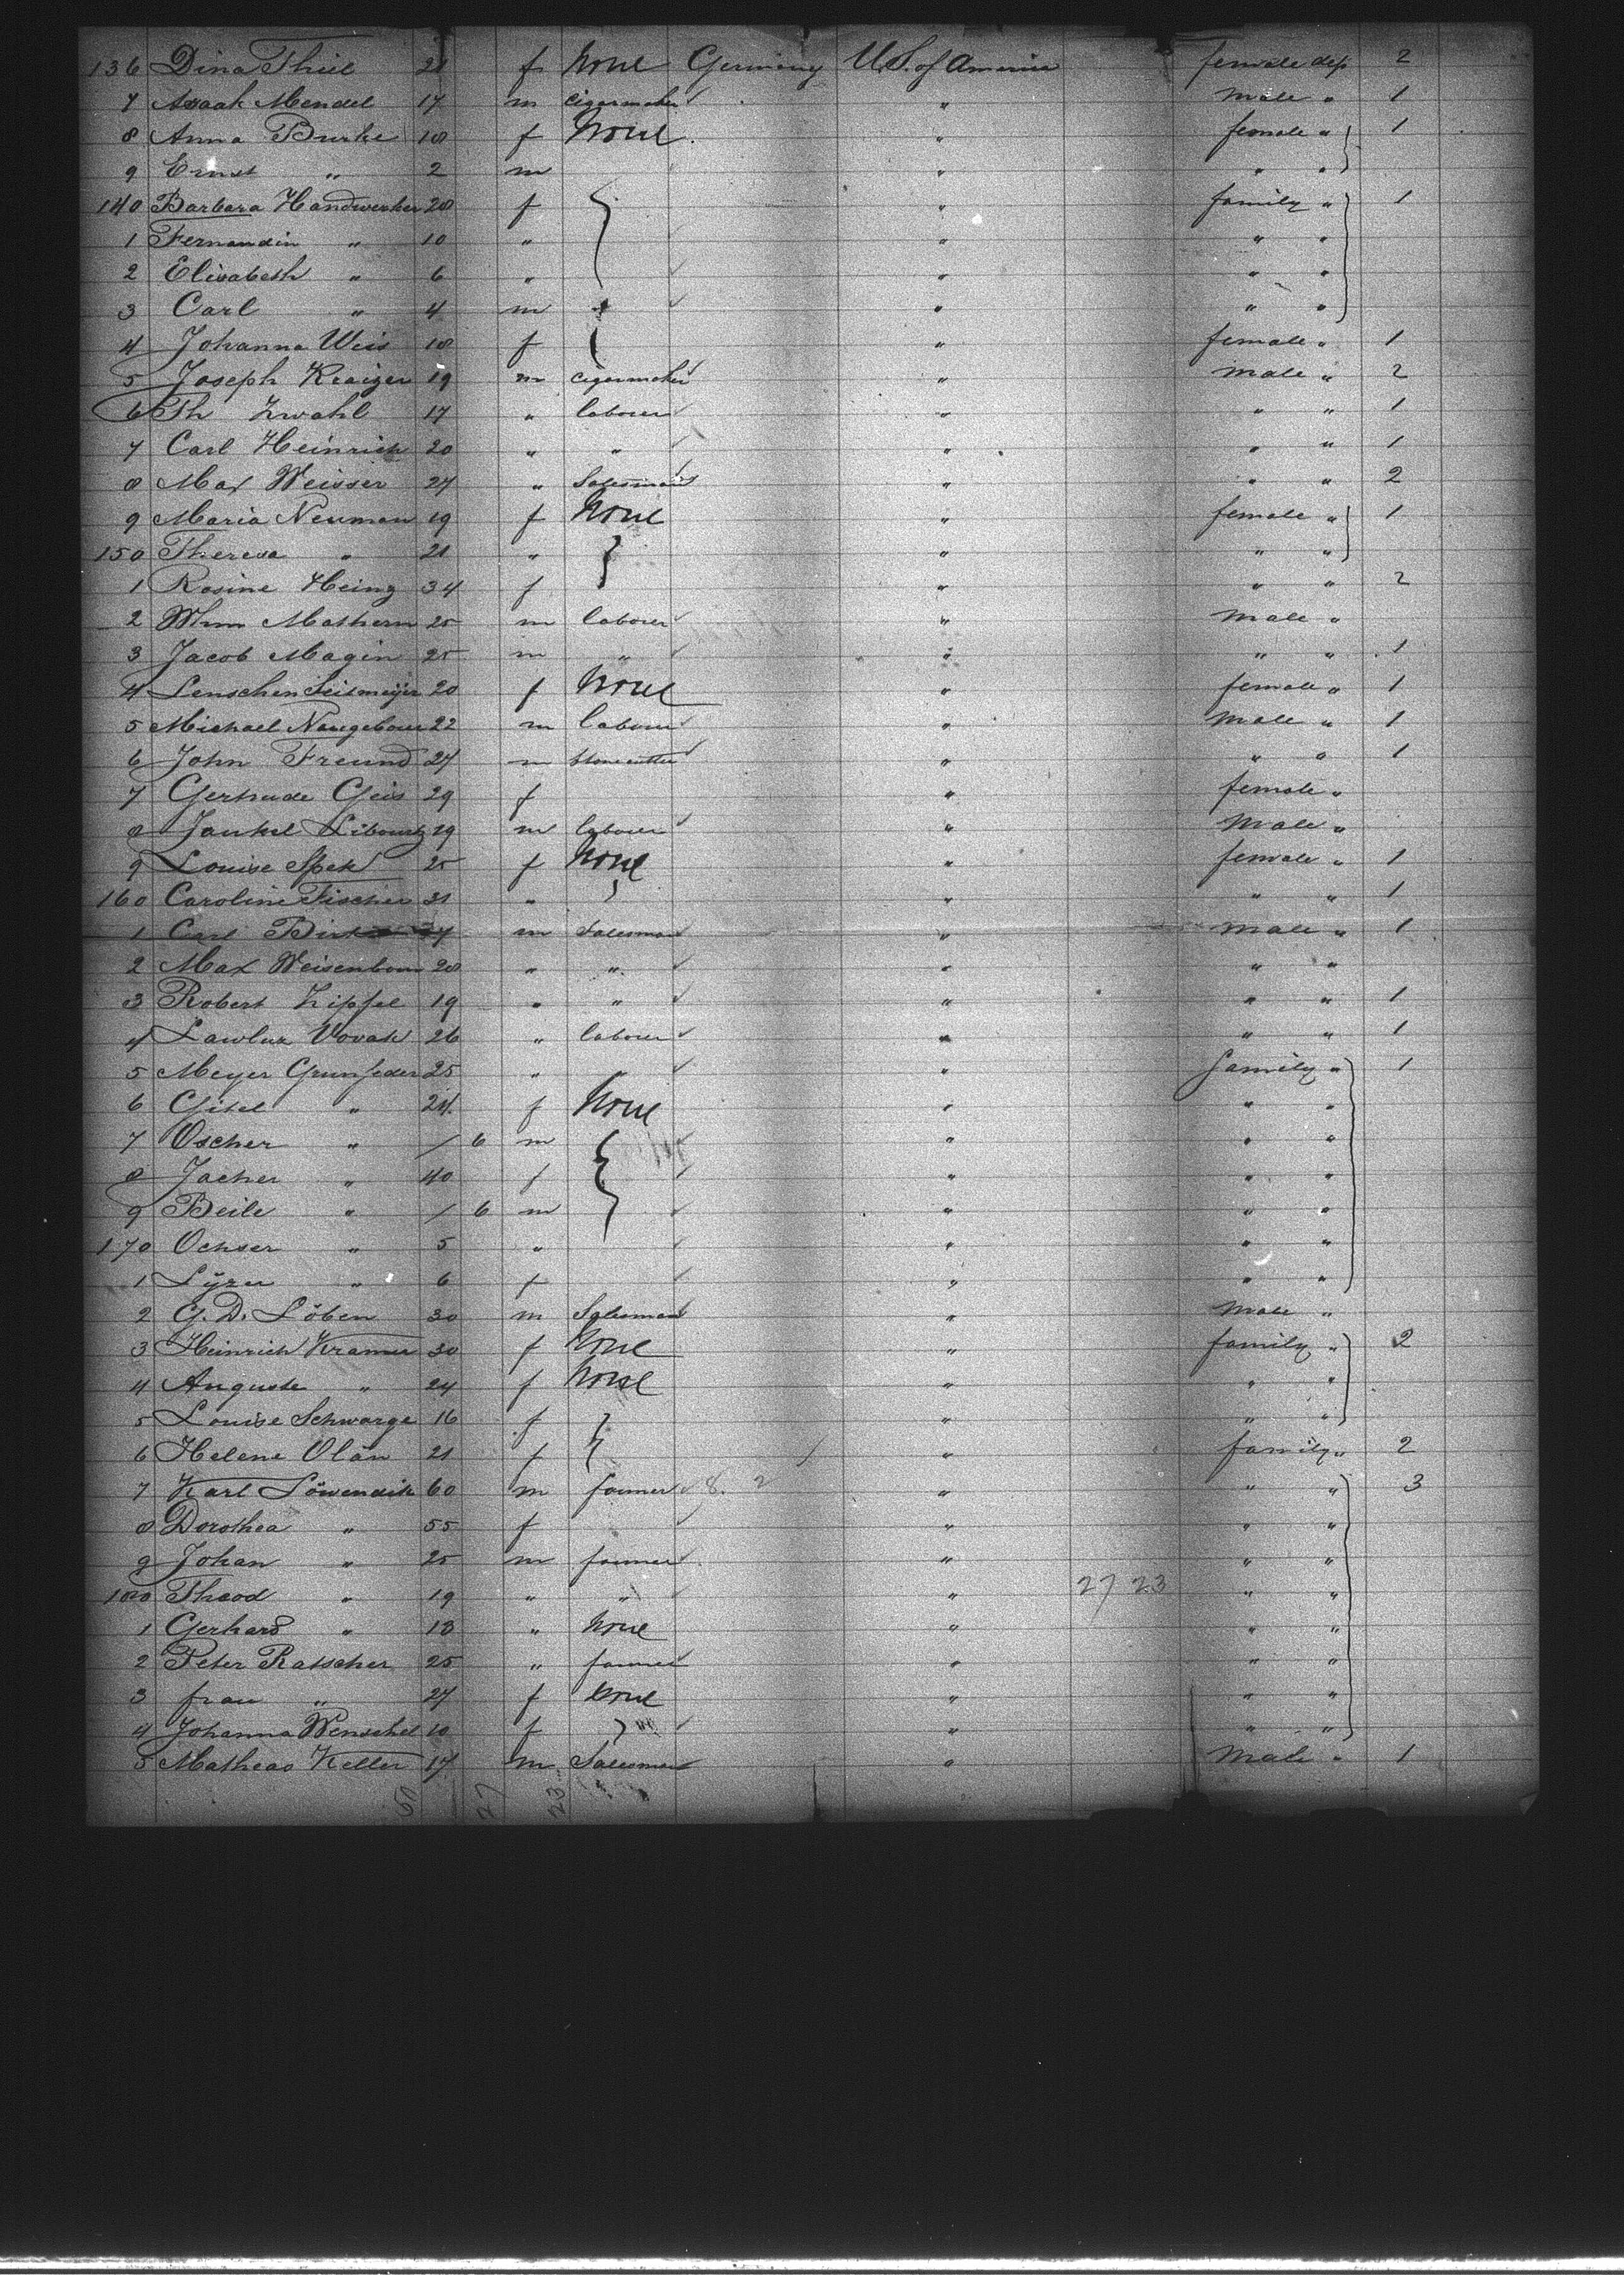 136 Dina Thiel 21 f None Germany U.S. of America female dep 2
7 Asaak Mendel 17 m cigarmaker " male " 1
8 Anna Burke 18 f None " female " 1
9 Ernst " 2 m " " "
140 Barbara Handwerker 28 f " family " 1
1 Fernandin " 10 " " " "
2 Elisabeth " 6 " " " "
3 Carl " 4 m " " "
4 Johanna Weis 18 f " female " 1
5 Joseph Kraizer 19 m cigarmaker " male " 2
6 Th Zwahl 17 " laborer " " " 1
7 Carl Heinrich 20 " " " " " 1
8 Max Weisser 27 " Salesman " " " 2
9 Maria Neuman 19 f None " female " 1
150 Theresa " 21 " " " "
1 Rosine Heinz 34 f " " " 2
2 Whm Mathern 25 m laborer " male "
3 Jacob Magin 25 m " " " " 1
4 Lenschen Seitmeijer 20 f None " female " 1
5 Michael Naugebour 22 m laborer " male " 1
6 John Freund 27 m stonecutter " " " 1
7 Gertrude Geis 29 f " female "
8 Jankel Libowitz 19 m laborer " Male "
9 Louise Spek 25 f None " female " 1
160 Caroline Fischer 21 " " " " 1
1 Carl m Salesman " male " 1
2 Max Weisenborn 28 " " " " "
3 Robert Zipfel 19 " " " " " 1
4 Vovak 26 " laborer " " " 1
5 Meyer Grunfeder 25 " " family " 1
6 Gitel " 24 f None " " "
7 Oscher " / 6 m " " "
8 Jacher " 40 f " " "
9 Beile " / 6 m " " "
170 Ochser " 5 " " " "
1 Lyzer " 6 f " " "
2 G. D. Löben 30 m Salesman " Male "
3 Heinrich Kramer 30 f None " family " 2
4 Auguste " 24 f None " " "
5 Louise Schwarze 16 f " " "
6 Helene Olän 21 f " family " 2
7 Karl Löwendik 60 m farmer 8. 2 " " " 3
8 Dorothea " 55 f " " "
9 Johan " 25 m farmer " " "
180 Theod " 19 " " " 27 23 " "
1 Gerhard " 18 " None " " "
2 Peter Ratscher 25 " farmer " " "
3 frau " 27 f None " " "
4 Johanna Wenschel 10 f " " "
5 Matheas Keller 17 m Salesman " Male " 1
50 27 23